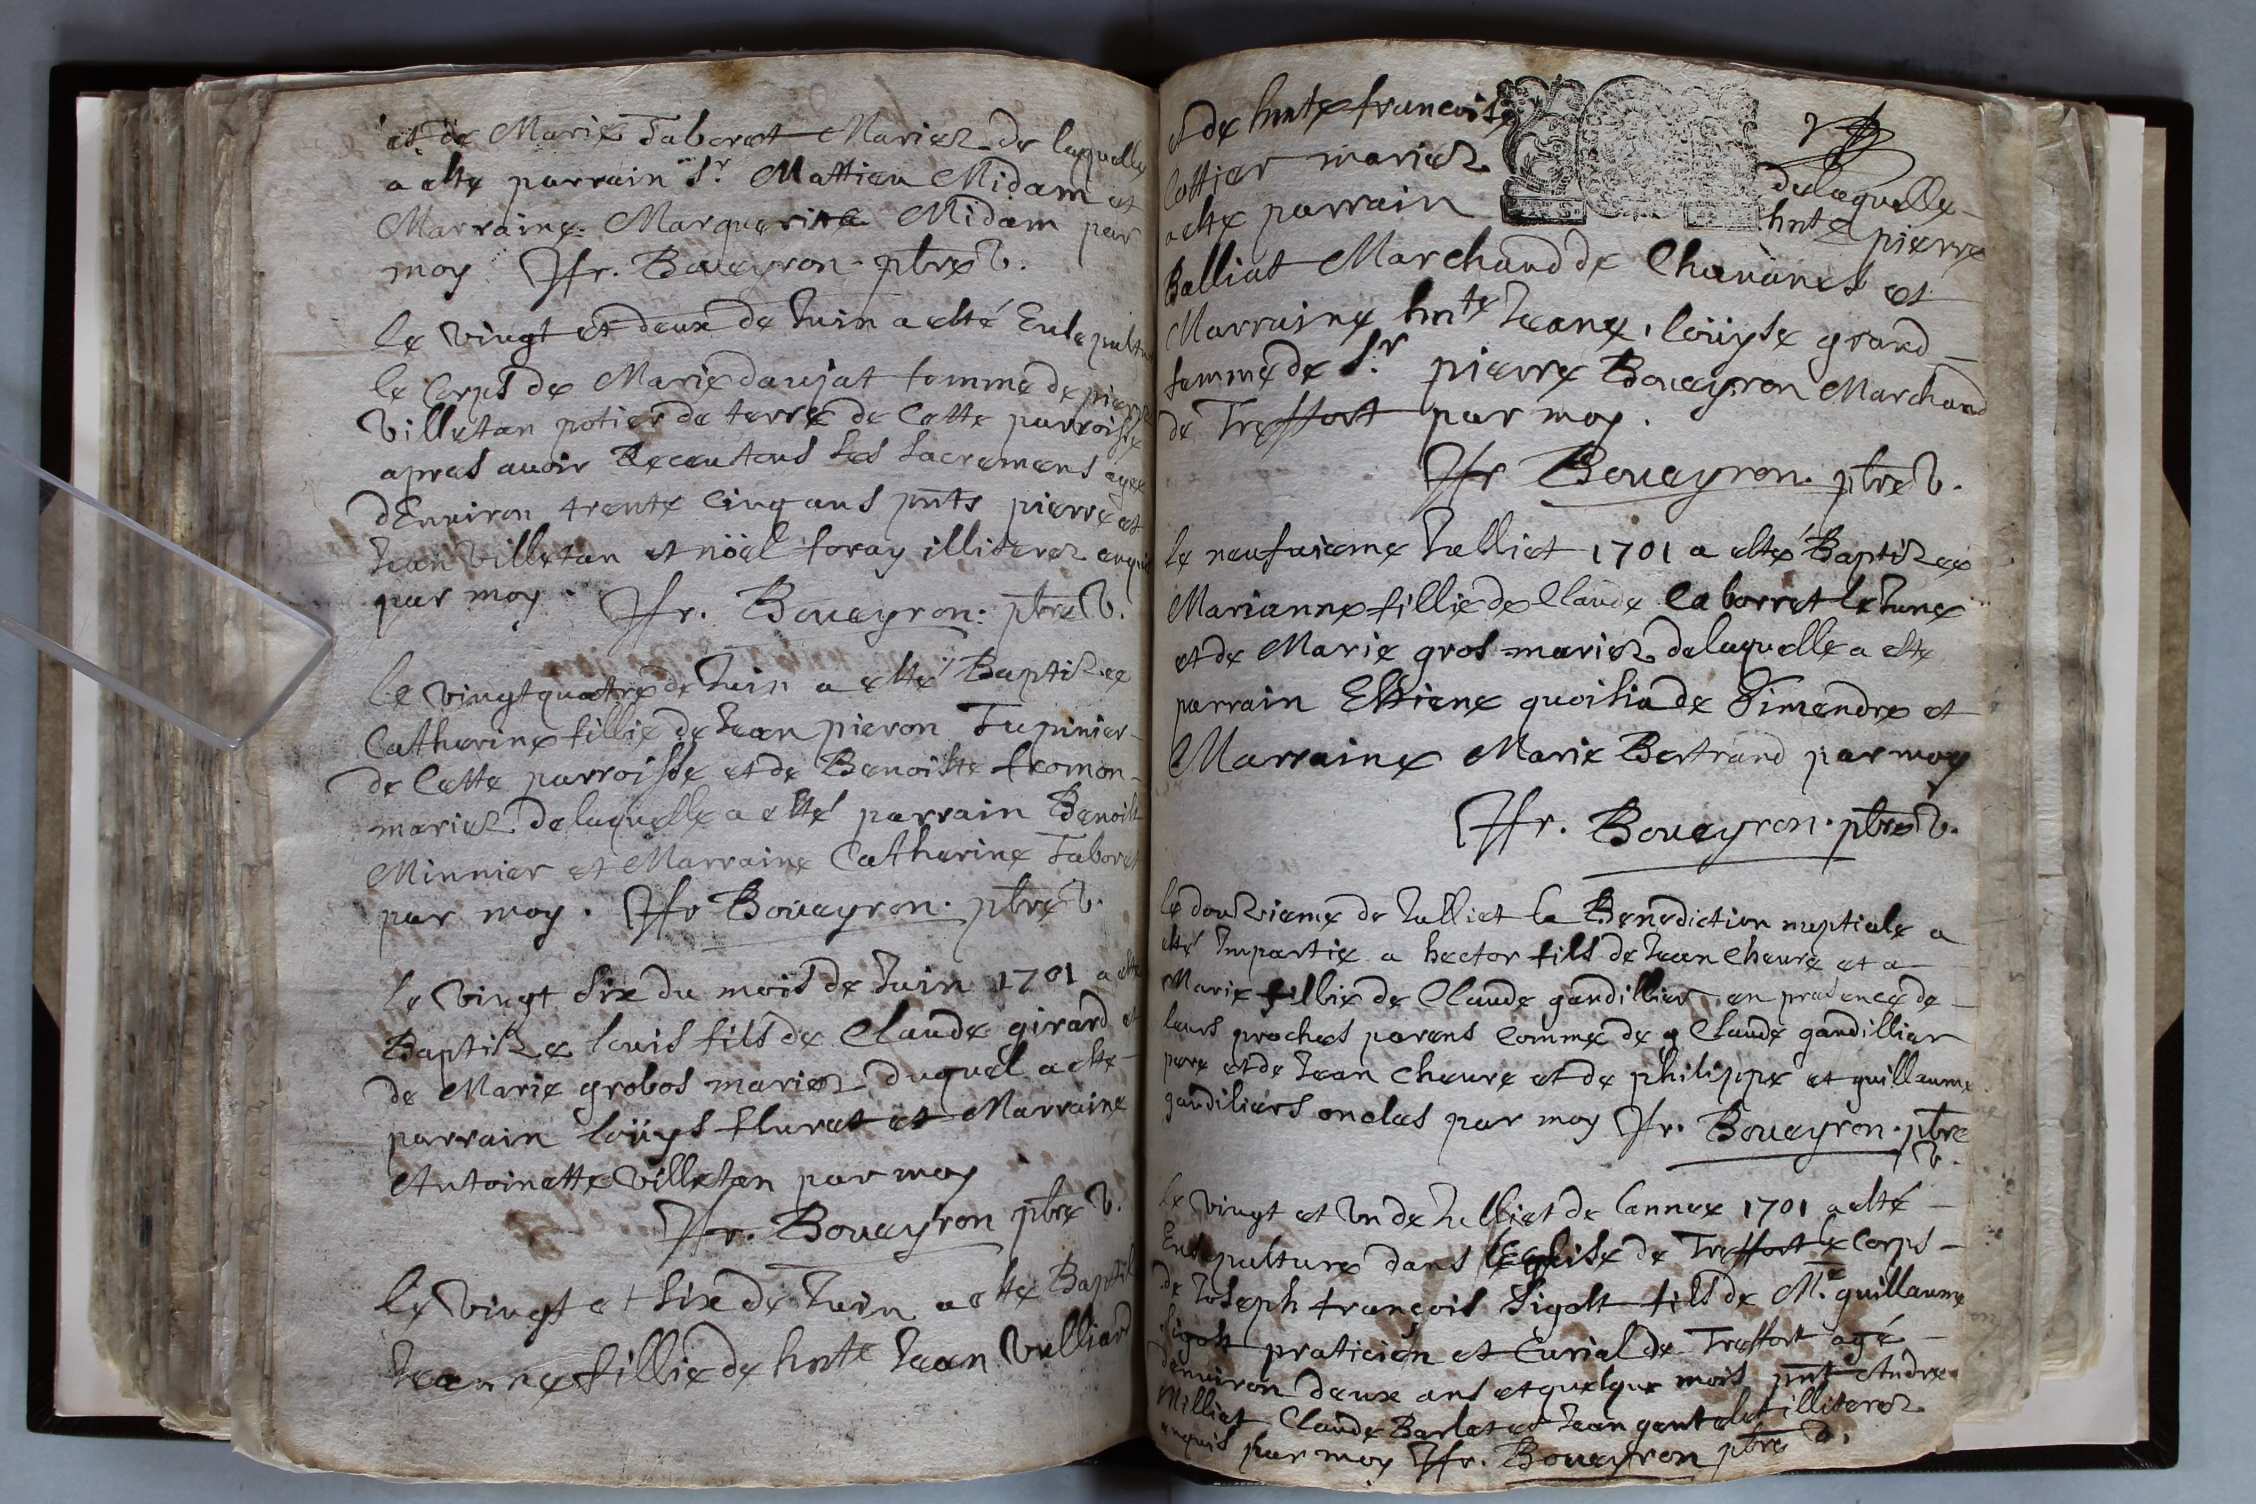 et de Marie Taboret Mariez de laquelle
a esté parrain Sr. Mattieu Midam et
Marraine Marguerite Midam par
moy Jfr. Boueyron ptre V.
le vingt et deux de Juin a esté Ensepultu
le Corps de Marie daujat femme de pierre
Villetan potier de terre de Cette parroisse
apres auoir Receu tous les sacremens agee
dEnuiron trente Cinq ans pnts pierre et
Jean Villetan et nöel foray illiterez enquis
par moy. Jfr. Boueyron. ptre V.
le vingt quatre de Juin a esté Baptizee
Catherine fillie de Jean pieron Tupinier
de Cette parroisse et de Benoiste fromon
mariez de laquelle a esté parrain Benoist
Minnier et Marraine Catherine Taboret
par moy. Jfr Boueyron. ptre V.
le vingt six du mois de Juin 1701 a esté
Baptize louis fils de Claude girard et
de Marie grobos mariez duquel a esté
parrain loüys fluret et Marraine
Antoinette Villetan par moy
Jfr. Boueyron ptre V.
le vingt et six de Juin a esté Baptis
Jeanne fillie de hnte Jean Vulliard
et de hnte francoise
Cottier mariez de laquelle
a esté parrain hnte pierre
Balliat Marchand de Chauanes et
Marraine hnte Jeane loüyse grand
femme de Sr. pierre Boueyron Marchand
de Treffort par moy.
Jfr Boueyron. ptre V.
le neufuieme Julliet 1701 a esté Baptizee
Marianne fillie de Claude laborret le June
et de Marie gros mariez de laquelle a esté
parrain Estiene quoisia de Simandre et
Marraine Marie Bertrand par moy
Jfr. Boueyron. ptre V.
le douzieme de Julliet la Benediction nuptiale a
esté Impartie a hector fils de Jean Cheure et a
Marie fillie de Claude gandillier en presence de
leurs proches parens comme de Claude gandillier
pere et de Jean Cheure et de philippe et guillaume
gandiliers oncles par moy Jfr. Boueyron. ptre
V.
le vingt et Vn de Julliet de lannee 1701 a esté
Ensepulture dans lEglise de Treffort le Corps
de Joseph françois Sigolt fils de Me. guillaume
Sigolt praticien et Curial de Treffort agé
denuiron deux ans et quelque mois pnt Andre
Milliat Claude Barlet et Jean gentelet illiterez
enquis par moy Jfr. Boueyron ptre V.